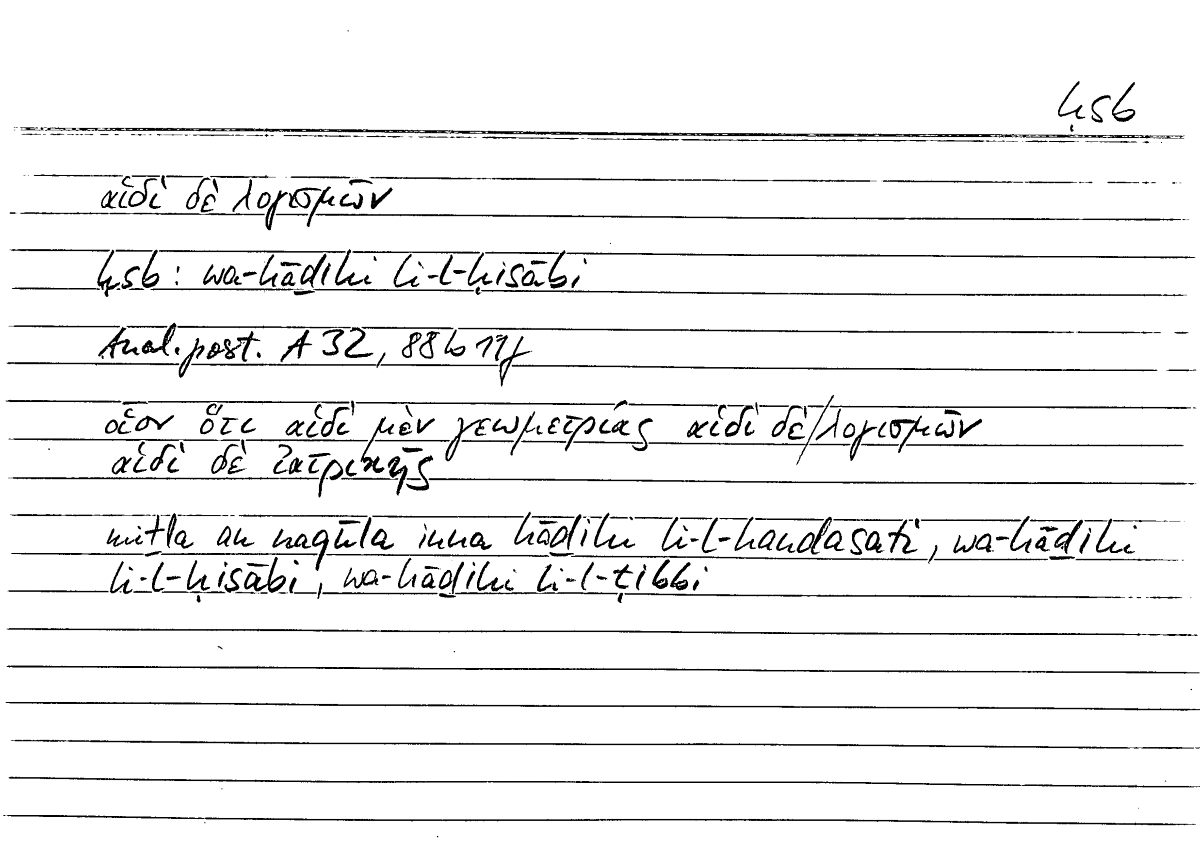 ḥsb
αἱδὶ δὲ λογισμῶν
ḥsb: wa-hāḏihi li-l-ḥisābi
Anal. post. A 32, 88 b 11f
οἷον ὅτι αἱδὶ μὲν γεωμετρίας αἱδὶ δὲ/λογισμῶν
αἱδὶ δὲ ἰατρικῆς
miṯla an naqūla inna hāḏihi li-l-handasati, wa-hāḏihi
li-l-ḥisābi, wa-hāḏihi li-l-ṭibbi